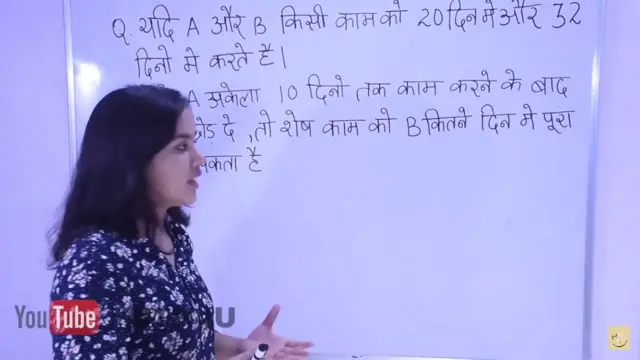 Q. यदि A और B किसी काम को 20 दिन मे और 32
दिनो में करते है।
A अकेला 10 दिनो तक काम करने के बाद
दे, तो शेष काम को B कितने दिन मे पूरा
सकता है
YouTube